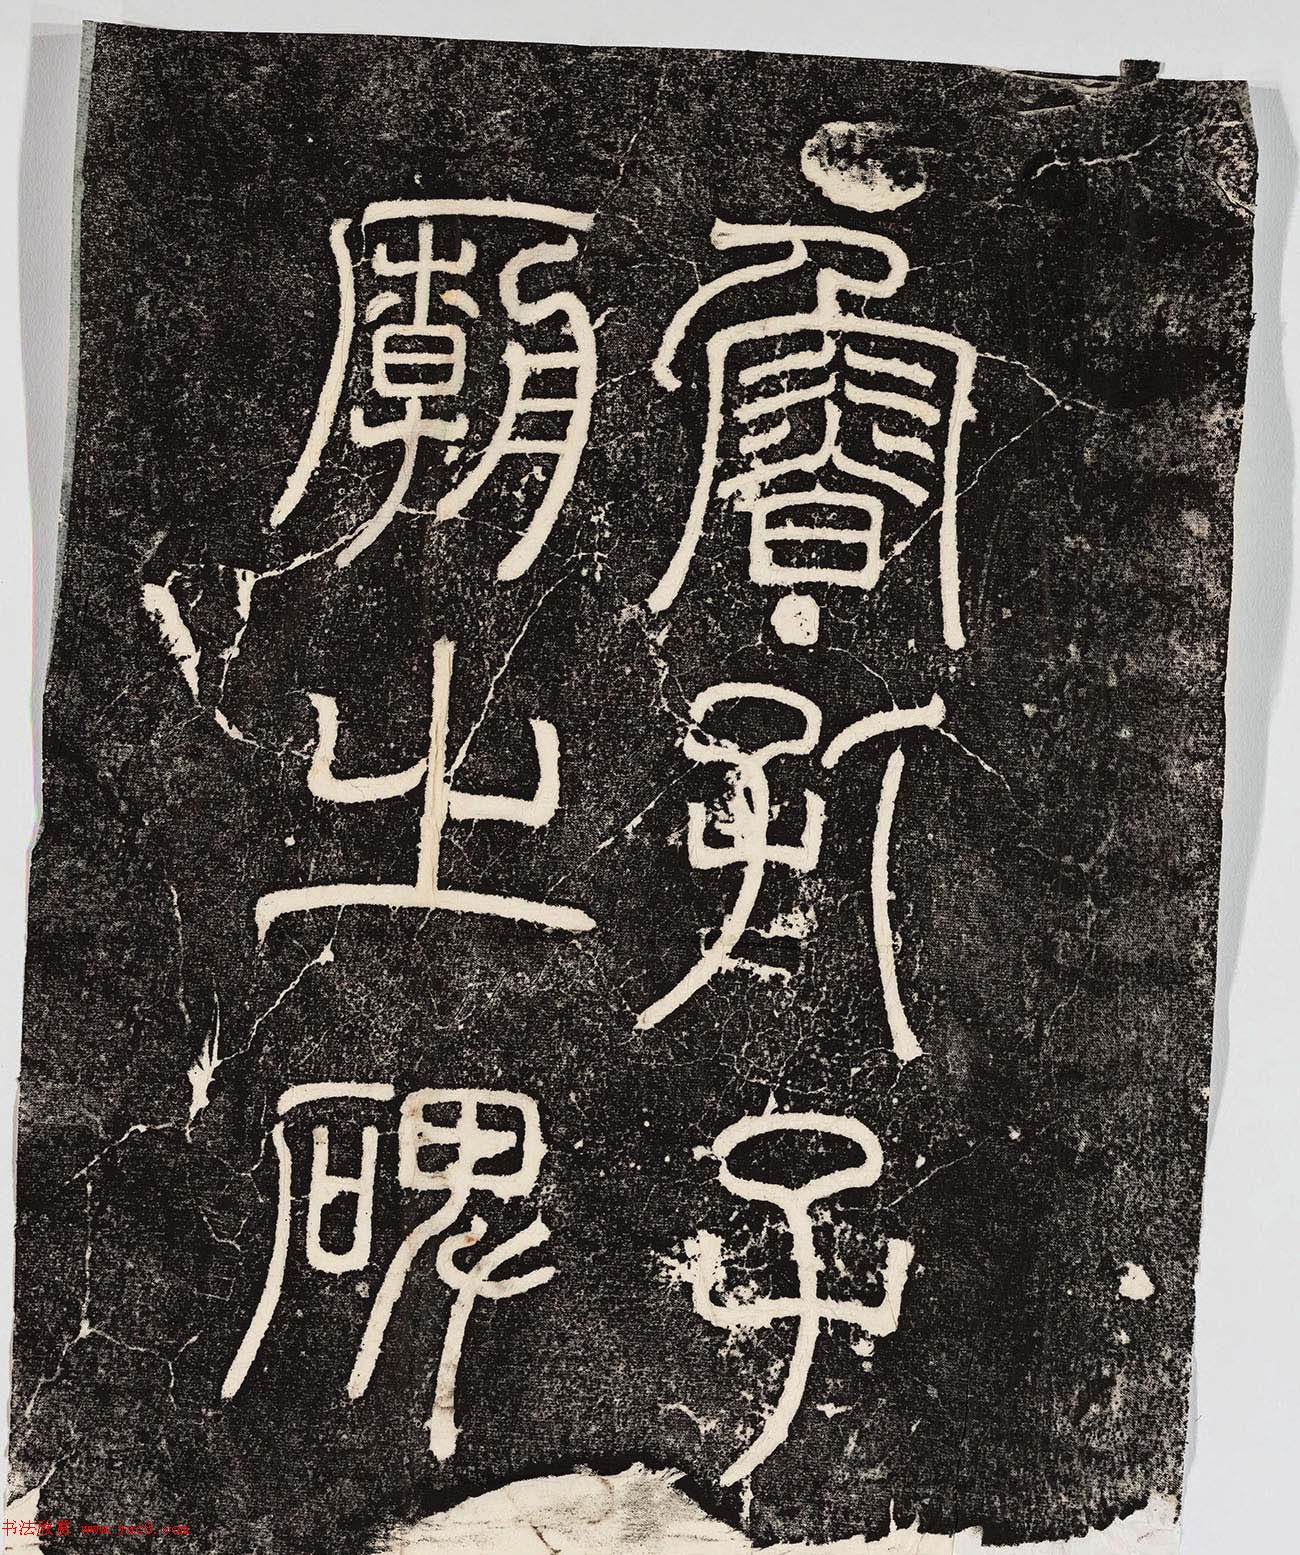 魯孔子
廟之碑
书法欣赏 www.yac8.com